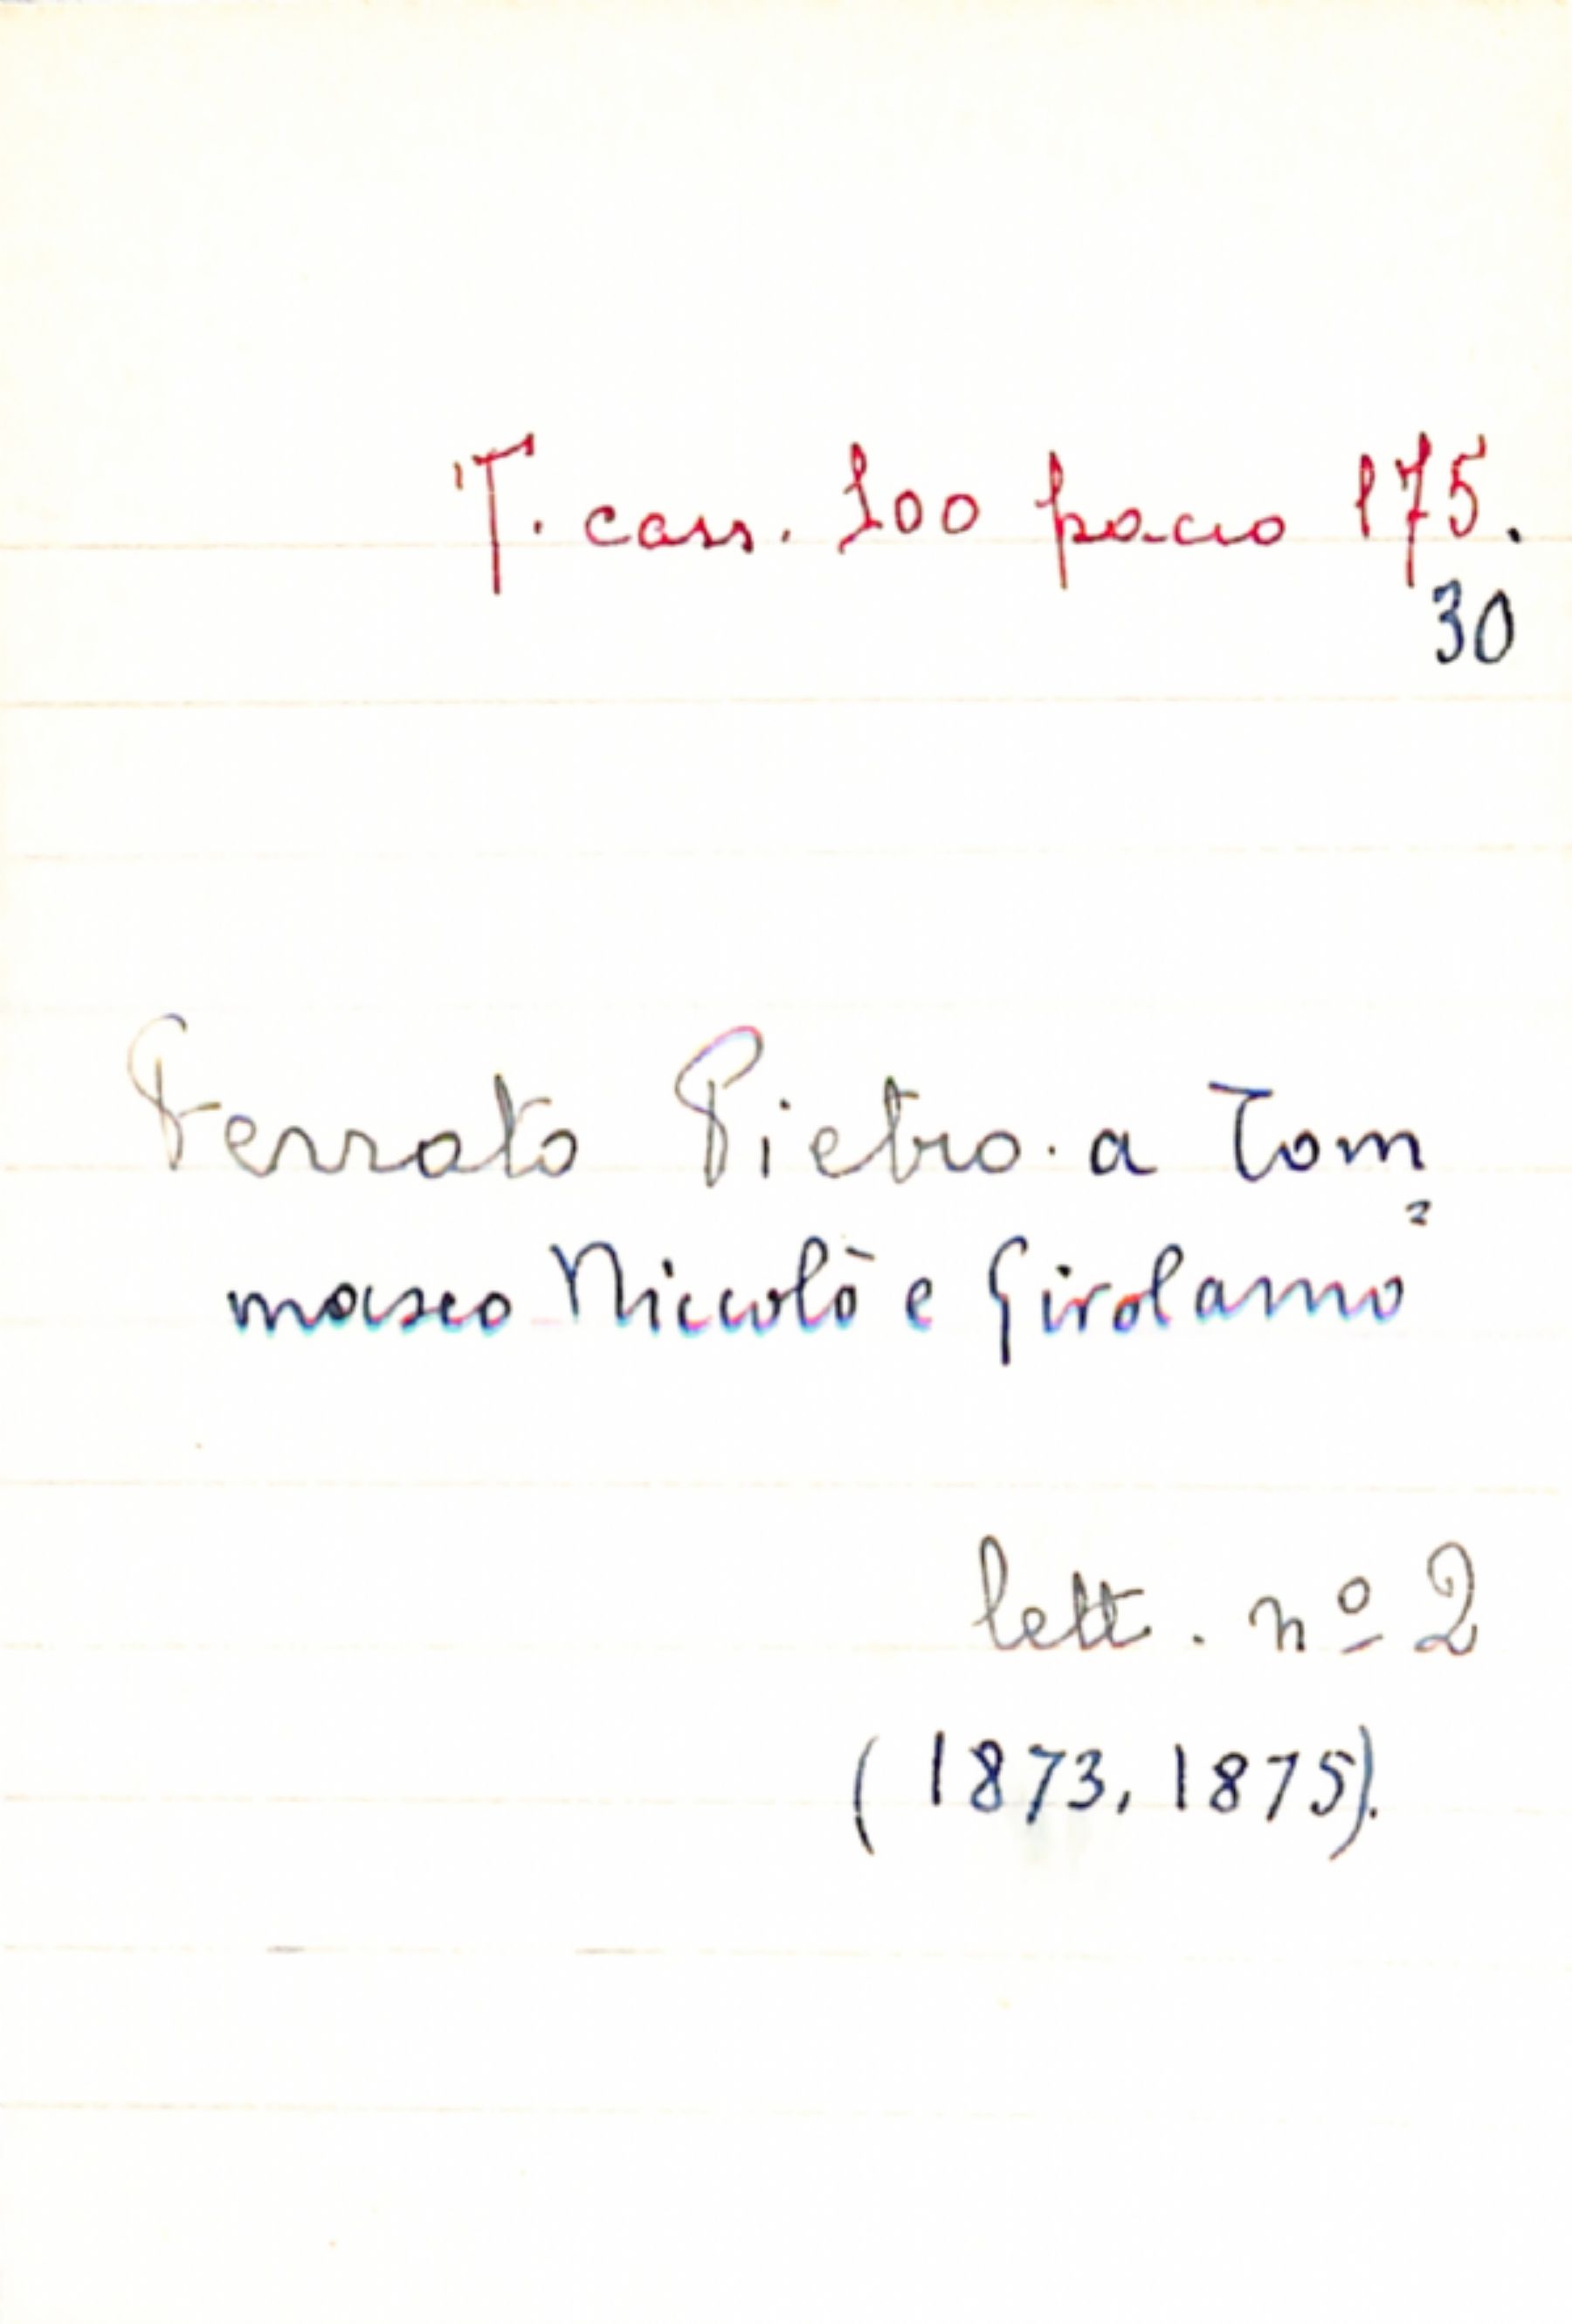 T. cass. 100 pacco 175.
30
Ferrato Pietro. a Tom=
maseo Niccolò e Girolamo
lett. nº 2
(1873, 1875).